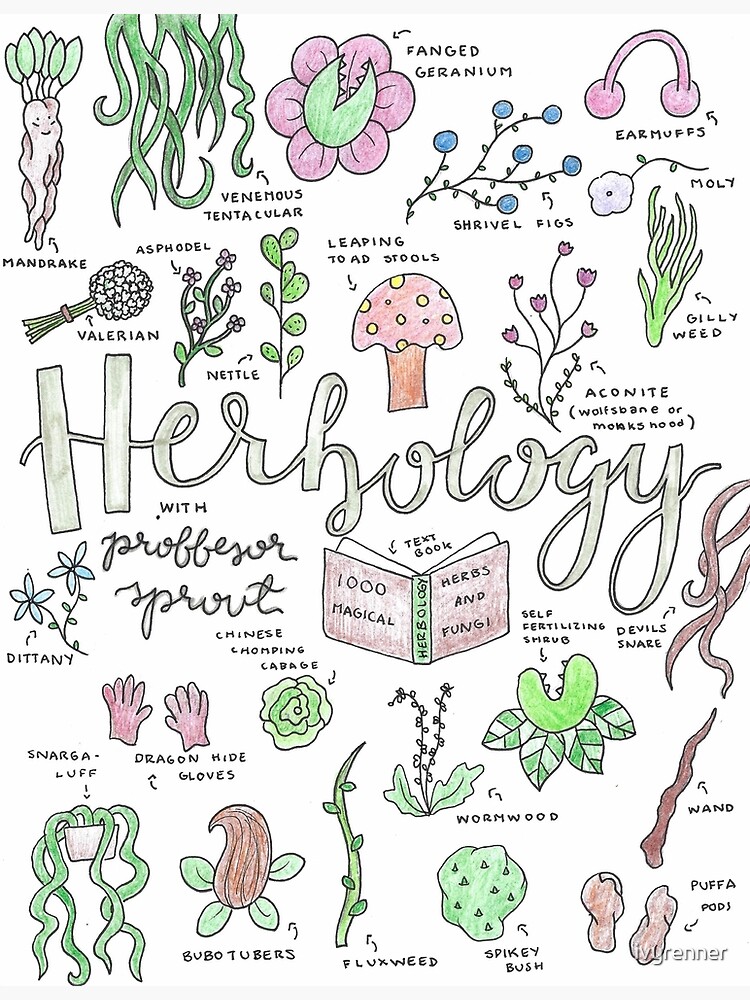 FANGED
GERANIUM
EARMUFFS
VENEMOUS
TENTACULAR
SHRIVEL FIGS
MOLY
MANDRAKE
ASPHODEL
LEAPING
TOAD STOOLS
VALERIAN
NETTLE
GILLY
WEED
ACONITE
(wolfsbane or
monkshood)
Herbology
WITH
proffesor
sprout
TEXT
BOOK
1000
MAGICAL
HERBOLOGY
HERBS
AND
FUNGI
SELF
FERTILIZING
SHRUB
DEVILS
SNARE
DITTANY
CHINESE
CHOMPING
CABAGE
SNARGA-
LUFF
DRAGON HIDE
GLOVES
WORMWOOD
WAND
PUFFA
PODS
BUBOTUBERS
FLUXWEED
SPIKEY
BUSH
ivyrenner